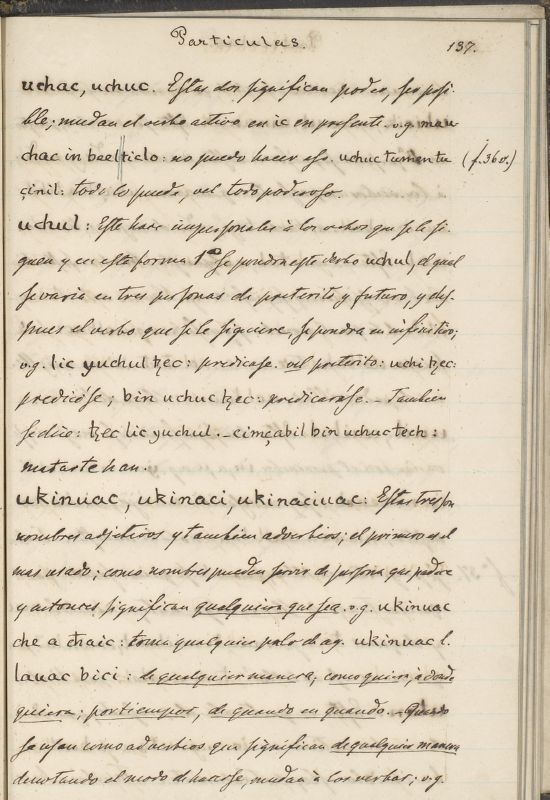 Particulas.
137.
uchac, uchuc. Estas dos significan poder, ser posi-
ble; mudan el verbo activo en ic en presente. v.g. mau
chac in beelticlo: no puedo hacer eso. uchuc tumentu (f. 36 v.)
çinil: todo lo puede, vel todo poderoso.
uchul: Este hace impersonales à los verbos que se le si-
guen y en esta forma 1º se pondra este verbo uchul, el qual
se varia en tres personas de preterito y futuro, y des-
pues el verbo que se le siguiere, se pondra en infinitivo;
v.g. lic yuchul tzec: predicase. vel preterito: uchi tzec:
predicóse; bin uchuc tzec: predicaráse. _ Tambien
se dice: tzec lic yuchul. _ cimçabil bin uchuc tech:
matarte han.
ukinuac, ukinaci, ukinaciuac: Estas tres son
nombres adjetivos y tambien adverbios; el primero es el
mas usado; como nombres pueden servir de persona que padece
y entonces significan qualquiera que sea. v.g. ukinuac
che a chaic: toma qualquier palo de ay. ukinuac l.
lauac bici: de qualquier manera, como quiera, à donde
quiera; por tiempos, de quando en quando. _
se usan como adverbios que significan de qualquier manera
denotando el modo de hacerse, mudan à los verbos; v.g.